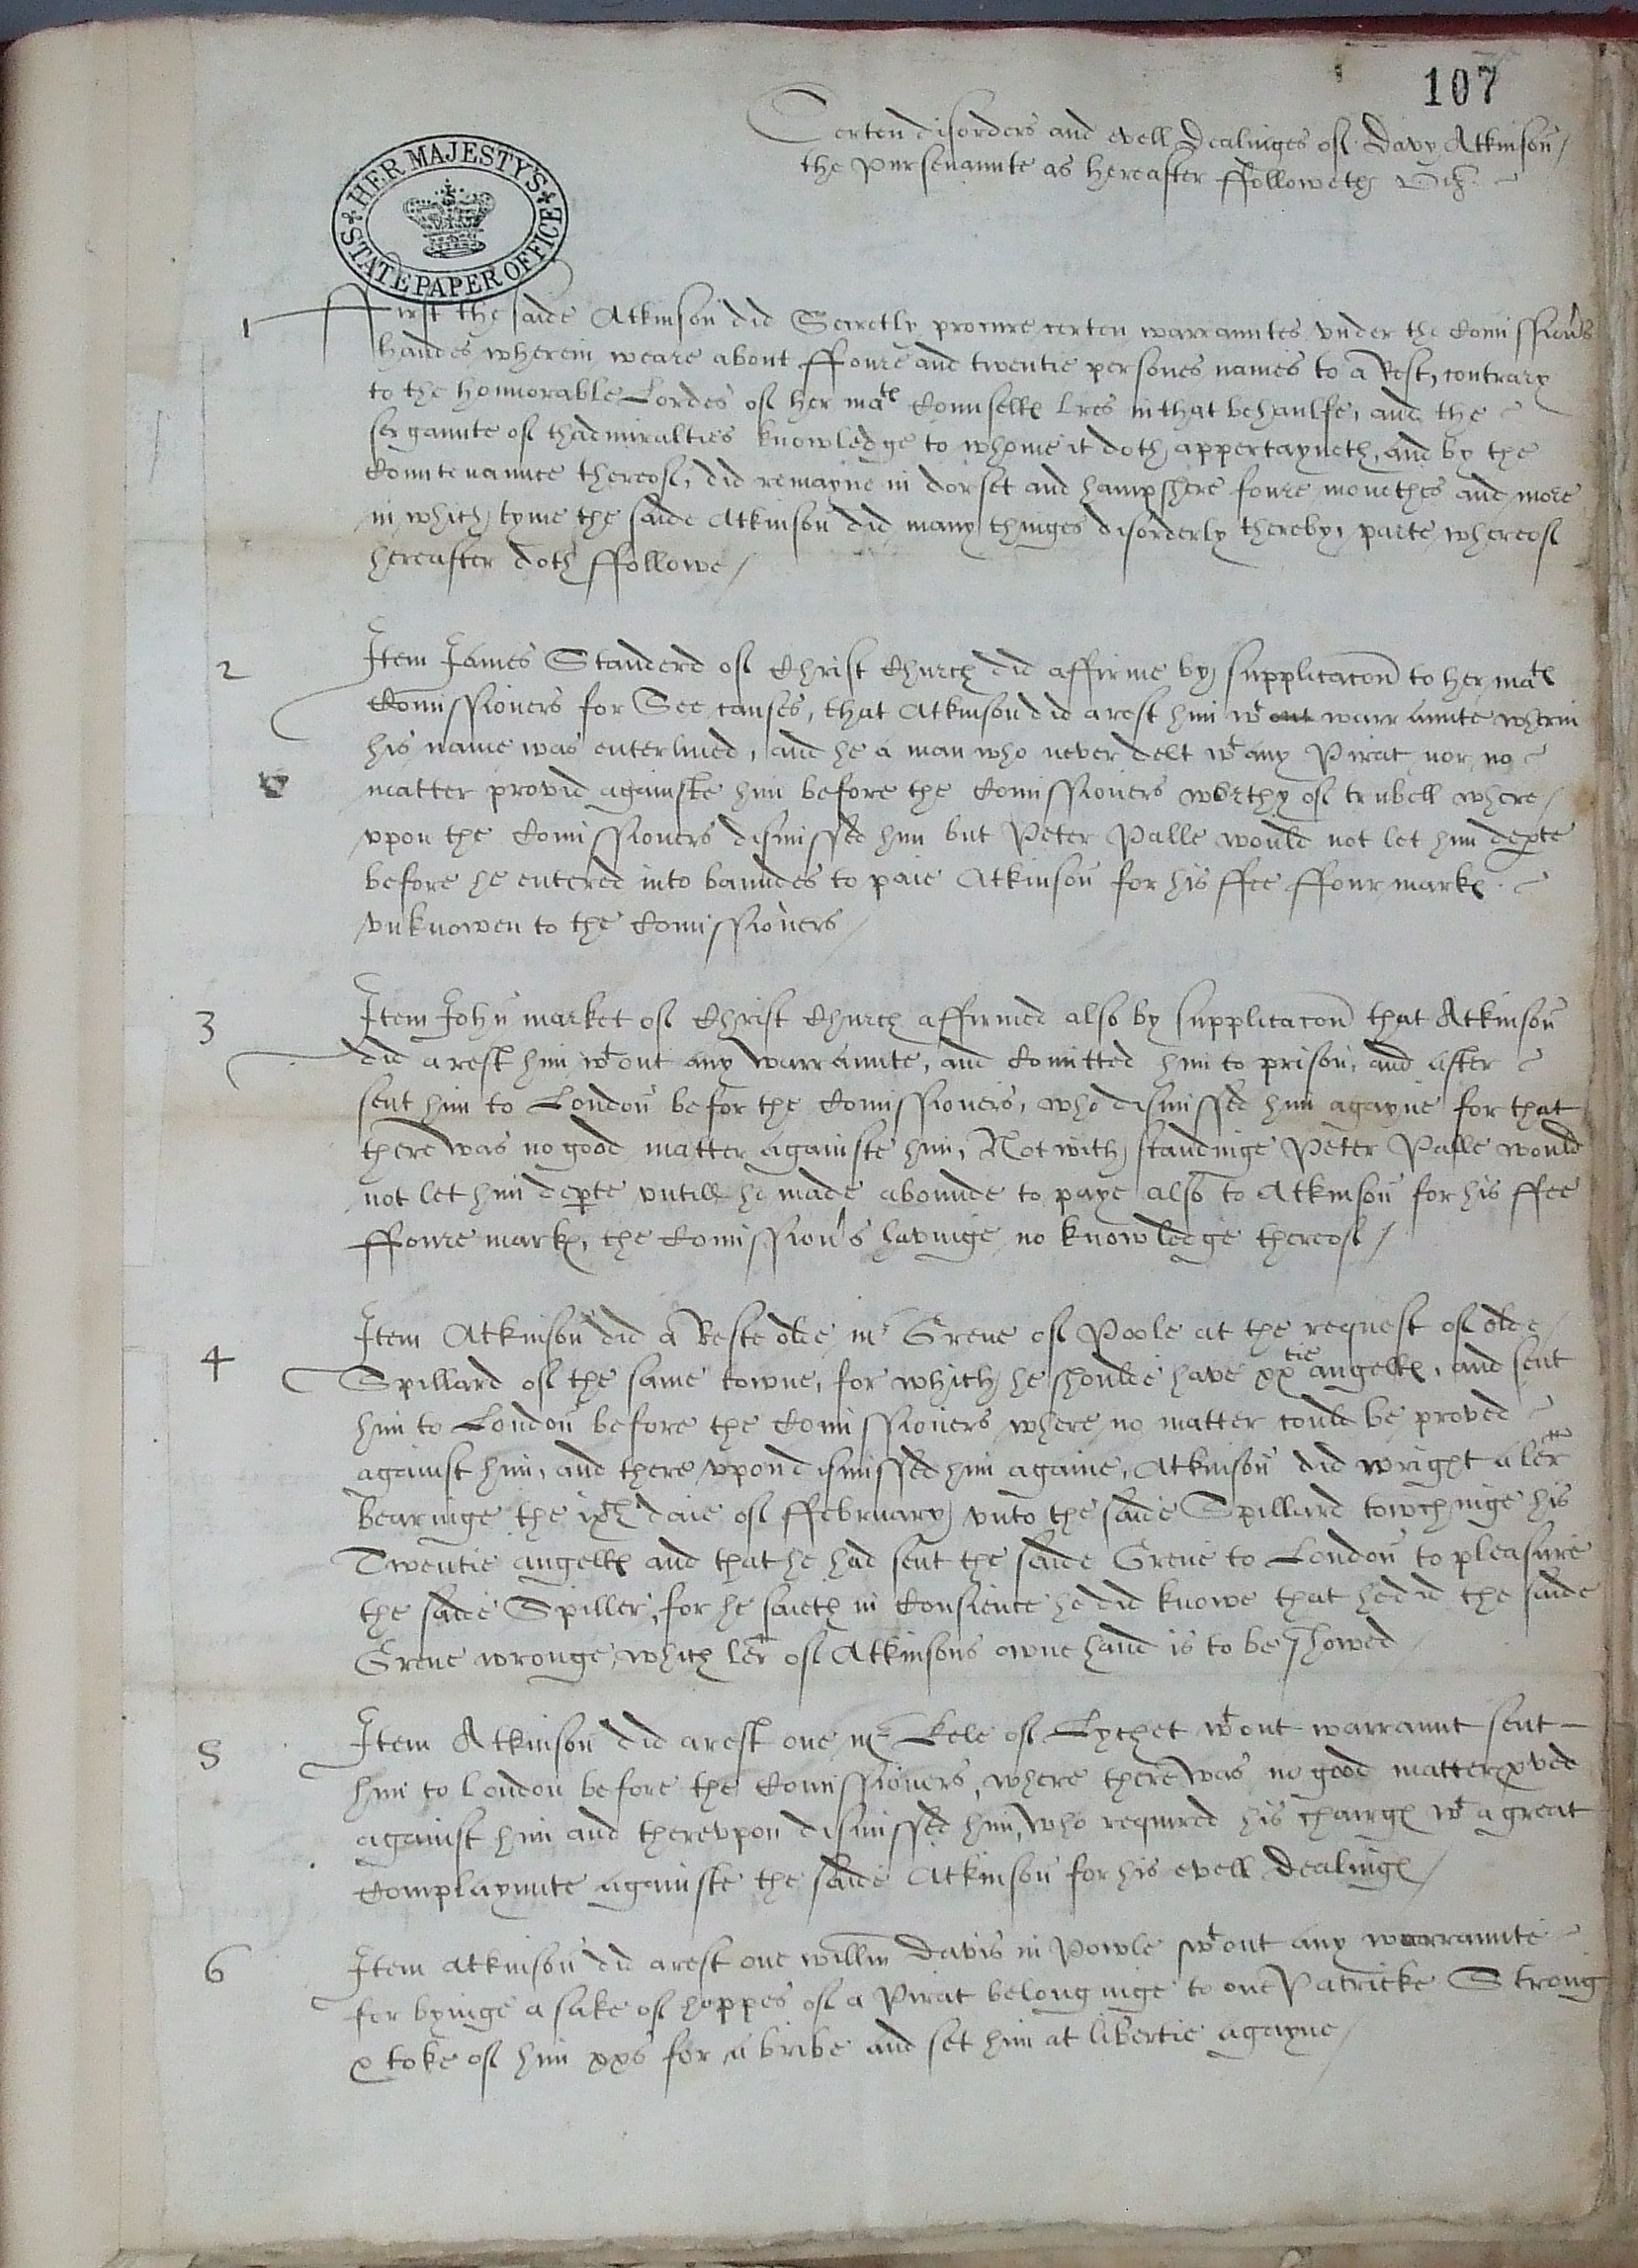 107
Certen disorders and evell Dealinges of Davy Atkinson /
the Pursevannte as hereafter ffolloweth viz.
HER MAJESTY'S
STATE PAPER OFFICE
1 First the saide Atkinson did Secretly procure certen warranntes vnder the Comissionrs
handes wherein weare about ffoure and twentie persones names to a Rest, contrary
to the honnorable Lordes of her matie Counselles lres in that behaulfe, and the
sergannte of thadmiralties knowledge to whome it doth appertayneth, and by the
Contenannce thereof, did remayne in dorset and hampshere foure monethes and more
in which tyme the saide Atkinson did many thinges disorderly thereby, parte whereof
hereafter doth ffollowe /
2 Item James Standerd of Christ Church did affirme by supplicacon to her maties
Comissioners for See causes, that Atkinson did arest him wt out warrannte wherin
his name was enterlined, and he a man who never delt wt any Pirat nor no
matter provid againste him before the Comissioners worthy of trubell where /
vpon the Comissioners dismissed him but Peter Palle would not let him depte
before he entered into banndes to paie Atkinson for his ffee ffour markes
vnknowen to the Comissioners /
3 Item John market of Christ Church affirmed also by supplicacon that Atkinson
did arest him wt out any warrannte, and Comitted him to prison, and after
sent him to London befor the Comissioners, who dismissed him agayne for that
there was no good matter againste him, Not with standinge Peter Palle would
not let him depte vntill he made abounde to paye also to Atkinson for his ffee
ffoure markes, the Comissionrs havinge no knowledge thereof /
4 Item Atkinson did a Reste olde mr Grene of Poole at the request of olde /
Spillard of the same towne, for which he shoulde have xxtie angelles, and sent
him to London before the Comissioners where no matter could be proved
against him, and there vpon dismissed him againe, Atkinson did wright a ler
bearinge the ixth daie of ffebruary vnto the saide Spillard towchinge his
Twentie angelles and that he had sent the saide Grene to London to pleasure
the saide Spiller, for he saieth in Consience he did knowe that he did the saide
Grene wronge, which ler of Atkinsons owne hand is to be showed
5 Item Atkinson did arest one mr Kele of Lychet wt out warrannt sent
him to london before the Comissioners, where there was no good matter pved
against him and therevpon dismissed him, who required his chairges wt a great
Complaynnte againste the saide Atkinson for his evell Dealinges /
6 Item Atkinson did arest one willm Davis in Powle wt out any warrannte
for byinge a sake of hoppes of a Pirat belonginge to one Patricke Strong
& toke of him xxs for a bribe and set him at libertie agayne /